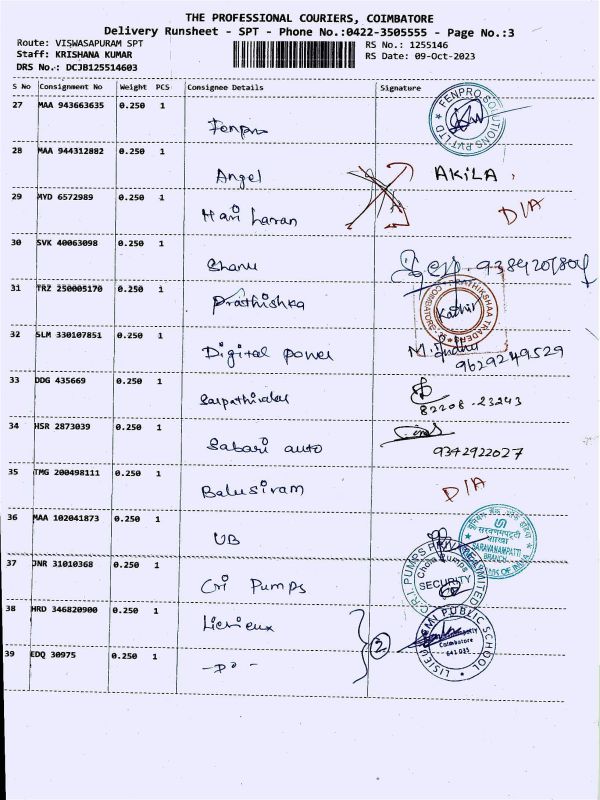 THE PROFESSIONAL COURIERS, COIMBATORE
Delivery Runsheet - SPT - Phone No.:0422-3505555 - Page No.:3
Route: VISWASAPURAM SPT
RS No.: 1255146
Staff: KRISHANA KUMAR
RS Date: 09-Oct-2023
DRS No.: DCJB125514603
S No Consignment No Weight PCS Consignee Details Signature
27 MAA 943663635 0.250 1
Fenpro
FENPRO SOLUTIONS PVT LTD
28 MAA 944312882 0.250 1
Angel AKILA
29 MYD 6572989 0.250 1
Hari haran D/A
30 SVK 40063098 0.250 1
Shanu
31 TRZ 250005170 0.250 1
Prathishka
PRATHIKSHAA TRADERS
Kathir
32 SLM 330107851 0.250 1
Digital power M. Indhu
9629249529
33 DDG 435669 0.250 1
82206-23243
34 HSR 2873039 0.250 1
Sabari auto 9342922027
35 TMG 200498111 0.250 1
Balusivam D/A
36 MAA 102041873 0.250 1
UB
सरवणमपट्टी
शाखा
SARAVANAMPATTI
BRANCH
37 JNR 31010368 0.250 1
Cri Pumps
C.R.I. PUMPS PRIVATE LIMITED
SECURITY
38 HRD 346820900 0.250 1
Lisieux
2
PUBLIC SCHOOL
Coimbatore
641 035
39 EDQ 30975 0.250 1
- Do -